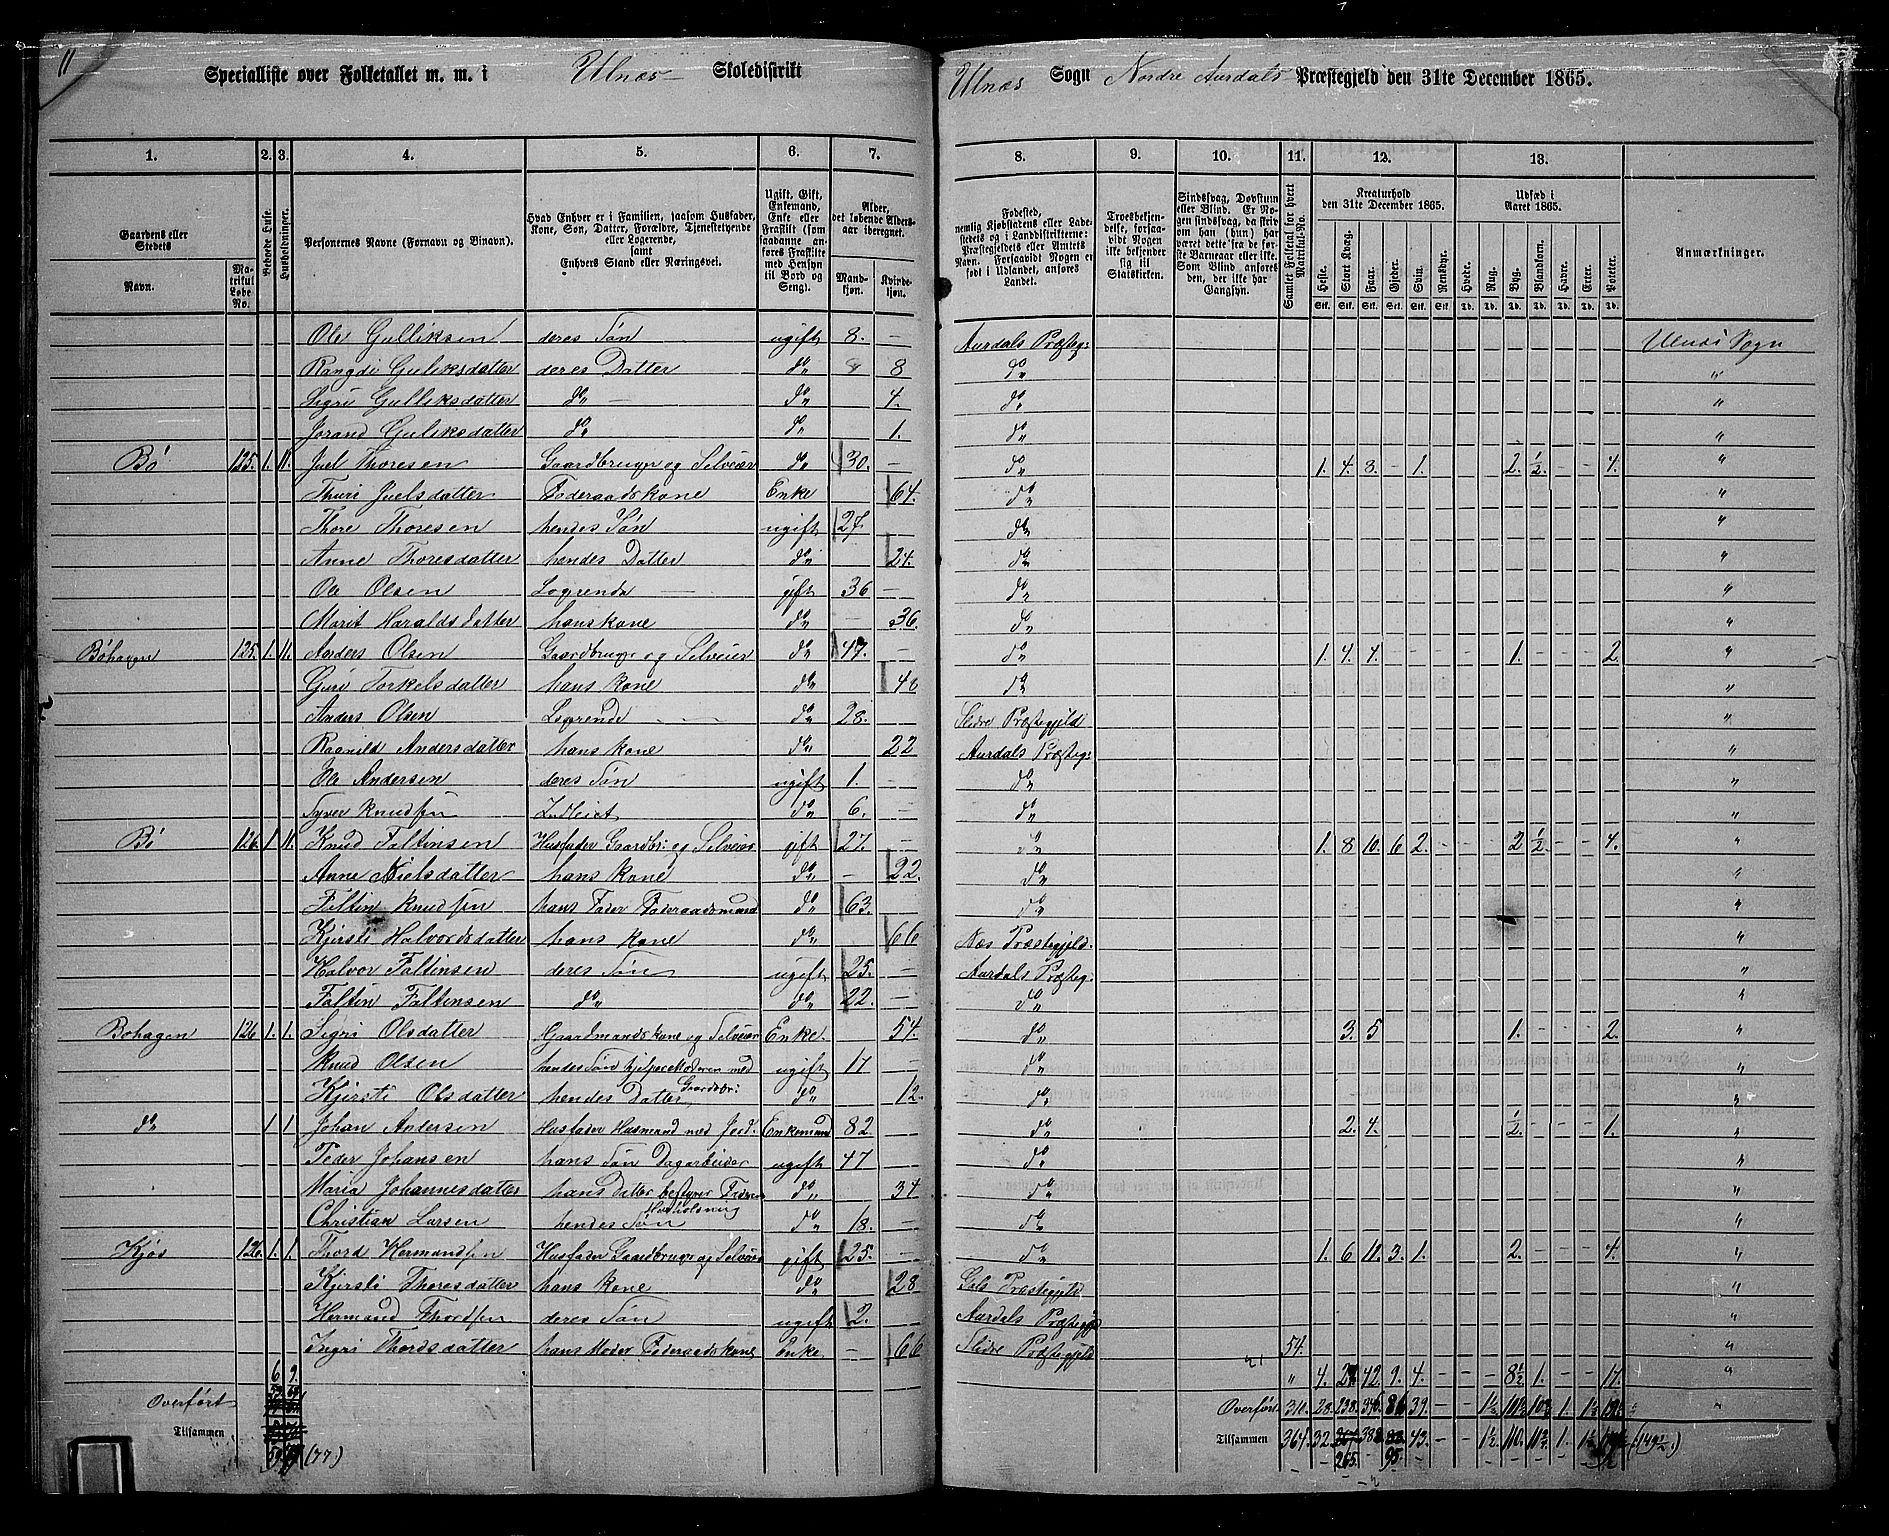 11
Specialliste over Folketallet m. m. i Ulnæs Skoledistrikt
Ulnæs Sogn Nordre Aurdals Præstegjeld den 31te December 1865.
1. 2. 3. 4. 5. 6. 7. 8. 9. 10. 11. 12. 13.
Gaardens eller Stedets
Navn. Matrikul Løbe No.
Beboede Huse.
Husholdninger.
Personernes Navne (Fornavn og Binavn).
Hvad Enhver er i Familien, saasom Husfader, Kone, Søn, Datter, Forældre, Tjenestetyende eller Logerende, samt Enhvers Stand eller Næringsvei.
Ugift, Gift, Enkemand, Enke eller Fraskilt (som saadanne anføres Fraskilte med Hensyn til Bord og Seng).
Alder, det løbende Aldersaar iberegnet.
Mandkjøn. Kvindekjøn.
Fødested, nemlig Kjøbstadens eller Ladestedets og i Landdistrikterne: Præstegjeldets eller Amtets Navn. Forsaavidt Nogen er født i Udlandet, anføres Landet.
Troesbekjendelse, forsaavidt Nogen ei bekjender sig til Statskirken.
Sindssvag, Døvstum eller Blind. Er Nogen sindssvag, da skrives om han (hun) har været dette fra de første Barneaar eller ikke. Som Blind ansøres den, der ikke har Gangsyn.
Samlet Folketal for hvert Matrikul-No.
Kreaturhold den 31te December 1865.
Heste. Stort Kvæg. Faar. Gjeder. Svin. Rensdyr.
Udsæd i Aaret 1865.
Hvede. Rug. Byg. Blandkorn. Havre. Erter. Poteter.
Anmærkninger.
Ole Gulliksen deres Søn ugift 8. - Aurdals Præsteg: Ulnæs Sogn
Rangdi Guliksdatter deres Datter do 8 do "
Sigri Gulliksdatter do - do 4. do "
Jorand Guliksdatter do do 1. do "
Bø 125. 1. 11. Juel Thoresen Gaardbruger og Selveier do 30. - do 1. 4. 3. - 1. 2. ½. - - 4. "
Thuri Juelsdatter Føderaadskone Enke 64. do "
Thore Thoresen hendes Søn ugift 27. do "
Anne Thoresdatter hendes Datter do 24. do "
Ole Olsen Logerende gift 36 - do "
Marit Haraldsdatter hans kone do - 36. do "
Bøhagen 125. 1. 11. Anders Olsen Gaardbruger og Selveier do 47. - do 1. 4. 4. 1. 2. "
Guri Torkelsdatter hans kone do do "
Anders Olsen Logerende do 28. Slidre Præstegjeld "
Ragnild Andersdatter hans kone do 22 Aurdals Præsteg: "
Ole Andersen deres Søn ugift 1. - do "
Syver Knudsen do 6. - do "
Bø 126. 1 11. Knud Faltinsen Husfader Gaardbr: og Selveier gift 27. - do 1. 8 10. 6 2. - 2 ½. - - 4. "
Anne Nielsdatter hans kone do - 22. do "
Faltin Knudsen hans Fader Føderaadsmand do 63. do "
Kjersti Halvordsdatter hans kone do 66 Næs Præstegjeld. "
Halvor Faltinsen deres Søn ugift 25. - Aurdals Præsteg: "
Faltin Faltinsen do do 22. - do "
Bøhagen 126 1. 1. Sigri Olsdatter Gaardmandskone og Selveier Enke. 54. do 3. 5 1. - - - 2. "
Knud Olsen hendes Søn hjelper Moderen med Gaardbr: ugift 17 - do "
Kjersti Olsdatter hendes Datter do 12. do "
do 1 1 Johan Andersen Husfader Husmand med Jord. Enkemand 82 - do 2. 4. ½. 1. "
Peder Johansen hans Søn Dagarbeider ugift 47 - do "
Maria Johannesdatter hans Datter bestyrer Faderens Husholdning do 34 do "
Christian Larsen hendes Søn do 18. - do "
Kjøs 126. 1. 1. Thord Hermandsen Husfader Gaardbruger og Selveier gift 25. - do 1. 6 10. 3. 1. 2. - - - 4. "
Kjersti Thoresdatter hans kone do 28 Gols Præstegjeld "
Hermand Thordsen deres Søn ugift 2. - Aurdals Præstegj: "
Ingri Thordsdatter hans Moder Føderaadskone Enke - 66 Slidre Præstegjeld 54. "
6 9. " 4. 42. 9. 4. - - - 8½ 1. - - 17. "
Overført
Overført. 310. 28. 238. 346. 86 39. - - 1½ "
Tilsammen 59 (77)
Tilsammen 364. 32. 388 43. - - 1½ 110. 1. (149½.)
265. 95.